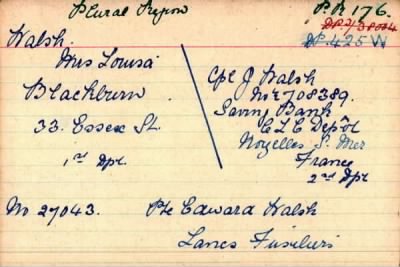 Plural Repon
P.R 176.
DP/38084
DP.425W
Walsh.
Mrs Louisa
Blackburn.
33. Essex St.
1st Dpt.
Cpl J Walsh
No E708389.
Saving Bank
C L C Depôt
Noyelles S. Mer
France
2nd Dpt
No 27043. Pte Edward Walsh
Lancs Fusiliers